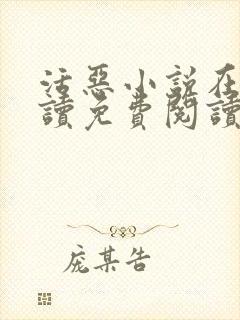 活惡小說在
讀免費閱讀
庞某告